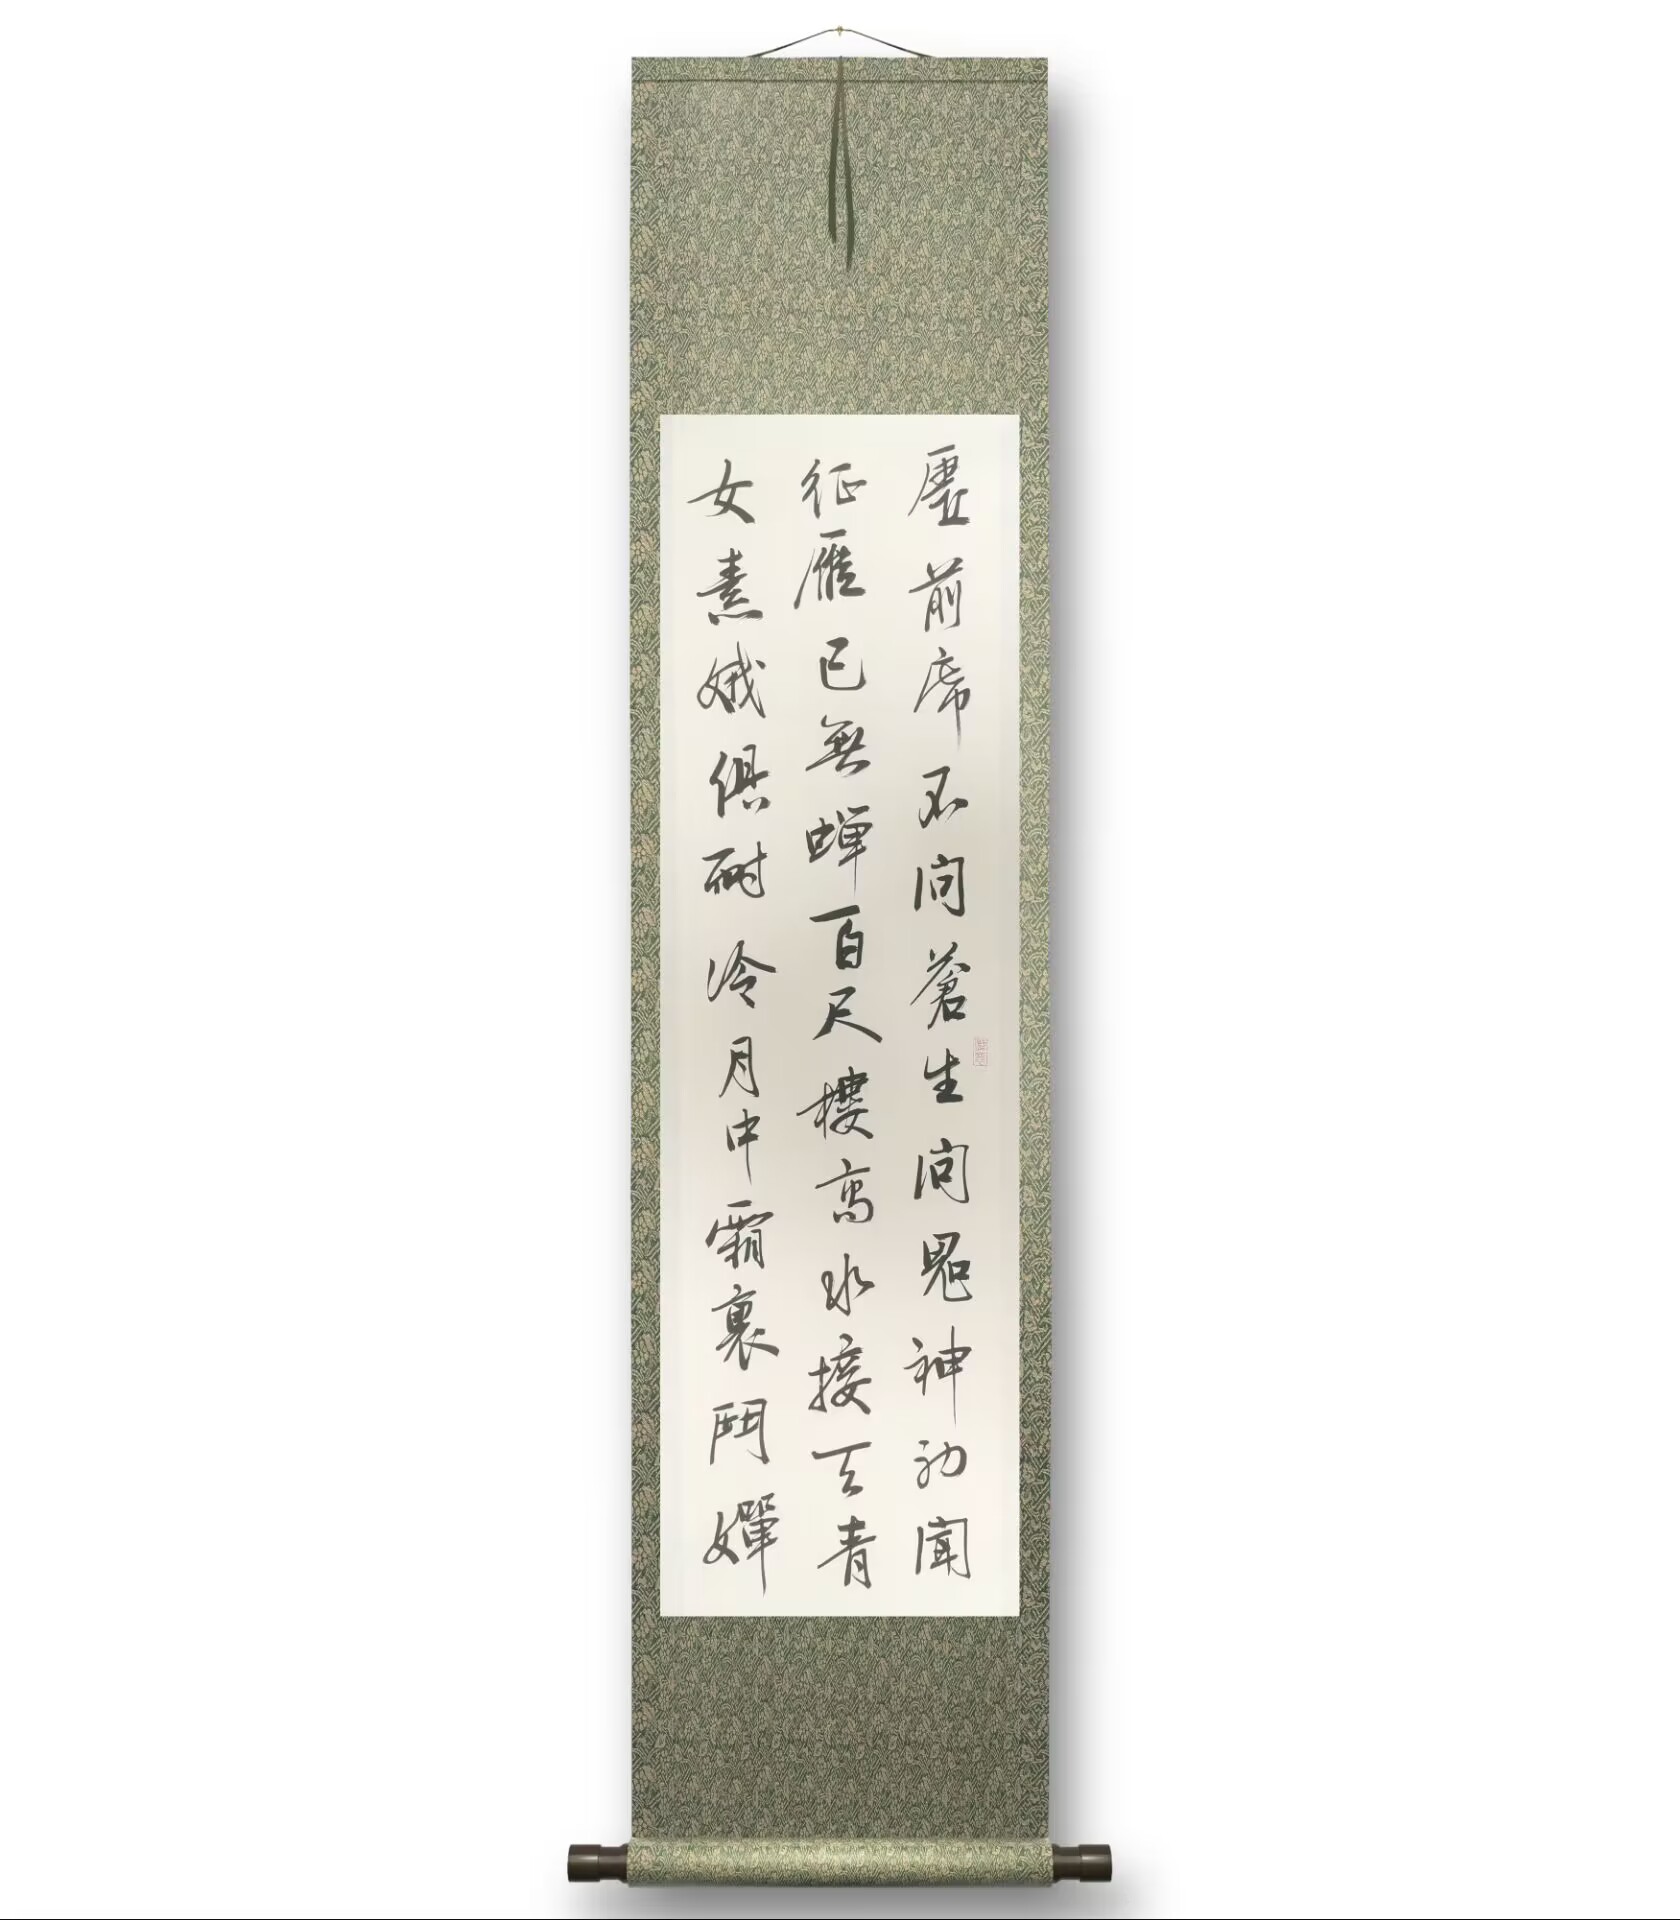 虛前席不問蒼生問鬼神初聞
征雁已無蟬百尺樓高水接天青
女素娥俱耐冷月中霜裏鬥嬋